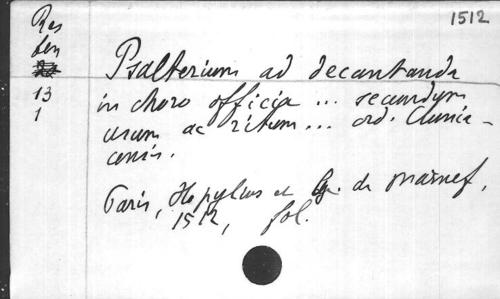 1512
Res
Len
13
1
Psalterium ad decantanda
in choro officia ... secundum
usum ac ritum ... ord. Clunia-
censis.
Paris, Hopylius et de Marnef,
1512, fol.